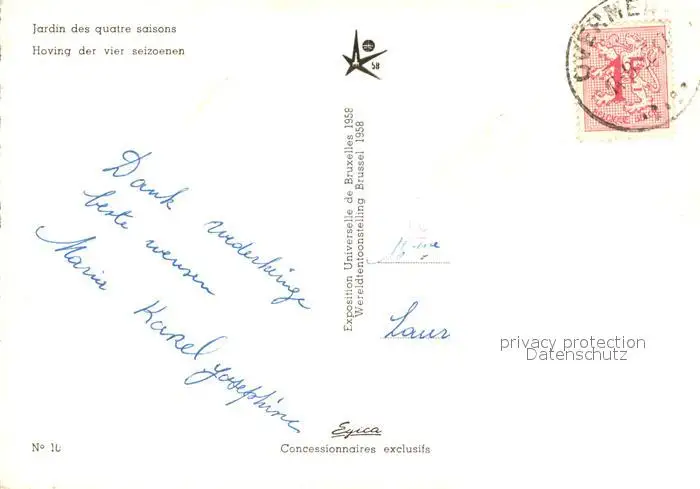 Jardin des quatre saisons
Hoving der vier seizoenen
58
1F
Exposition Universelle de Bruxelles 1958
Wereldtentoonstelling Brussel 1958
Dank wederkerige
beste wensen
Maria Karel Josephine
Mme
Laur
privacy protection
Datenschutz
Nº 10
Egica
Concessionnaires exclusifs